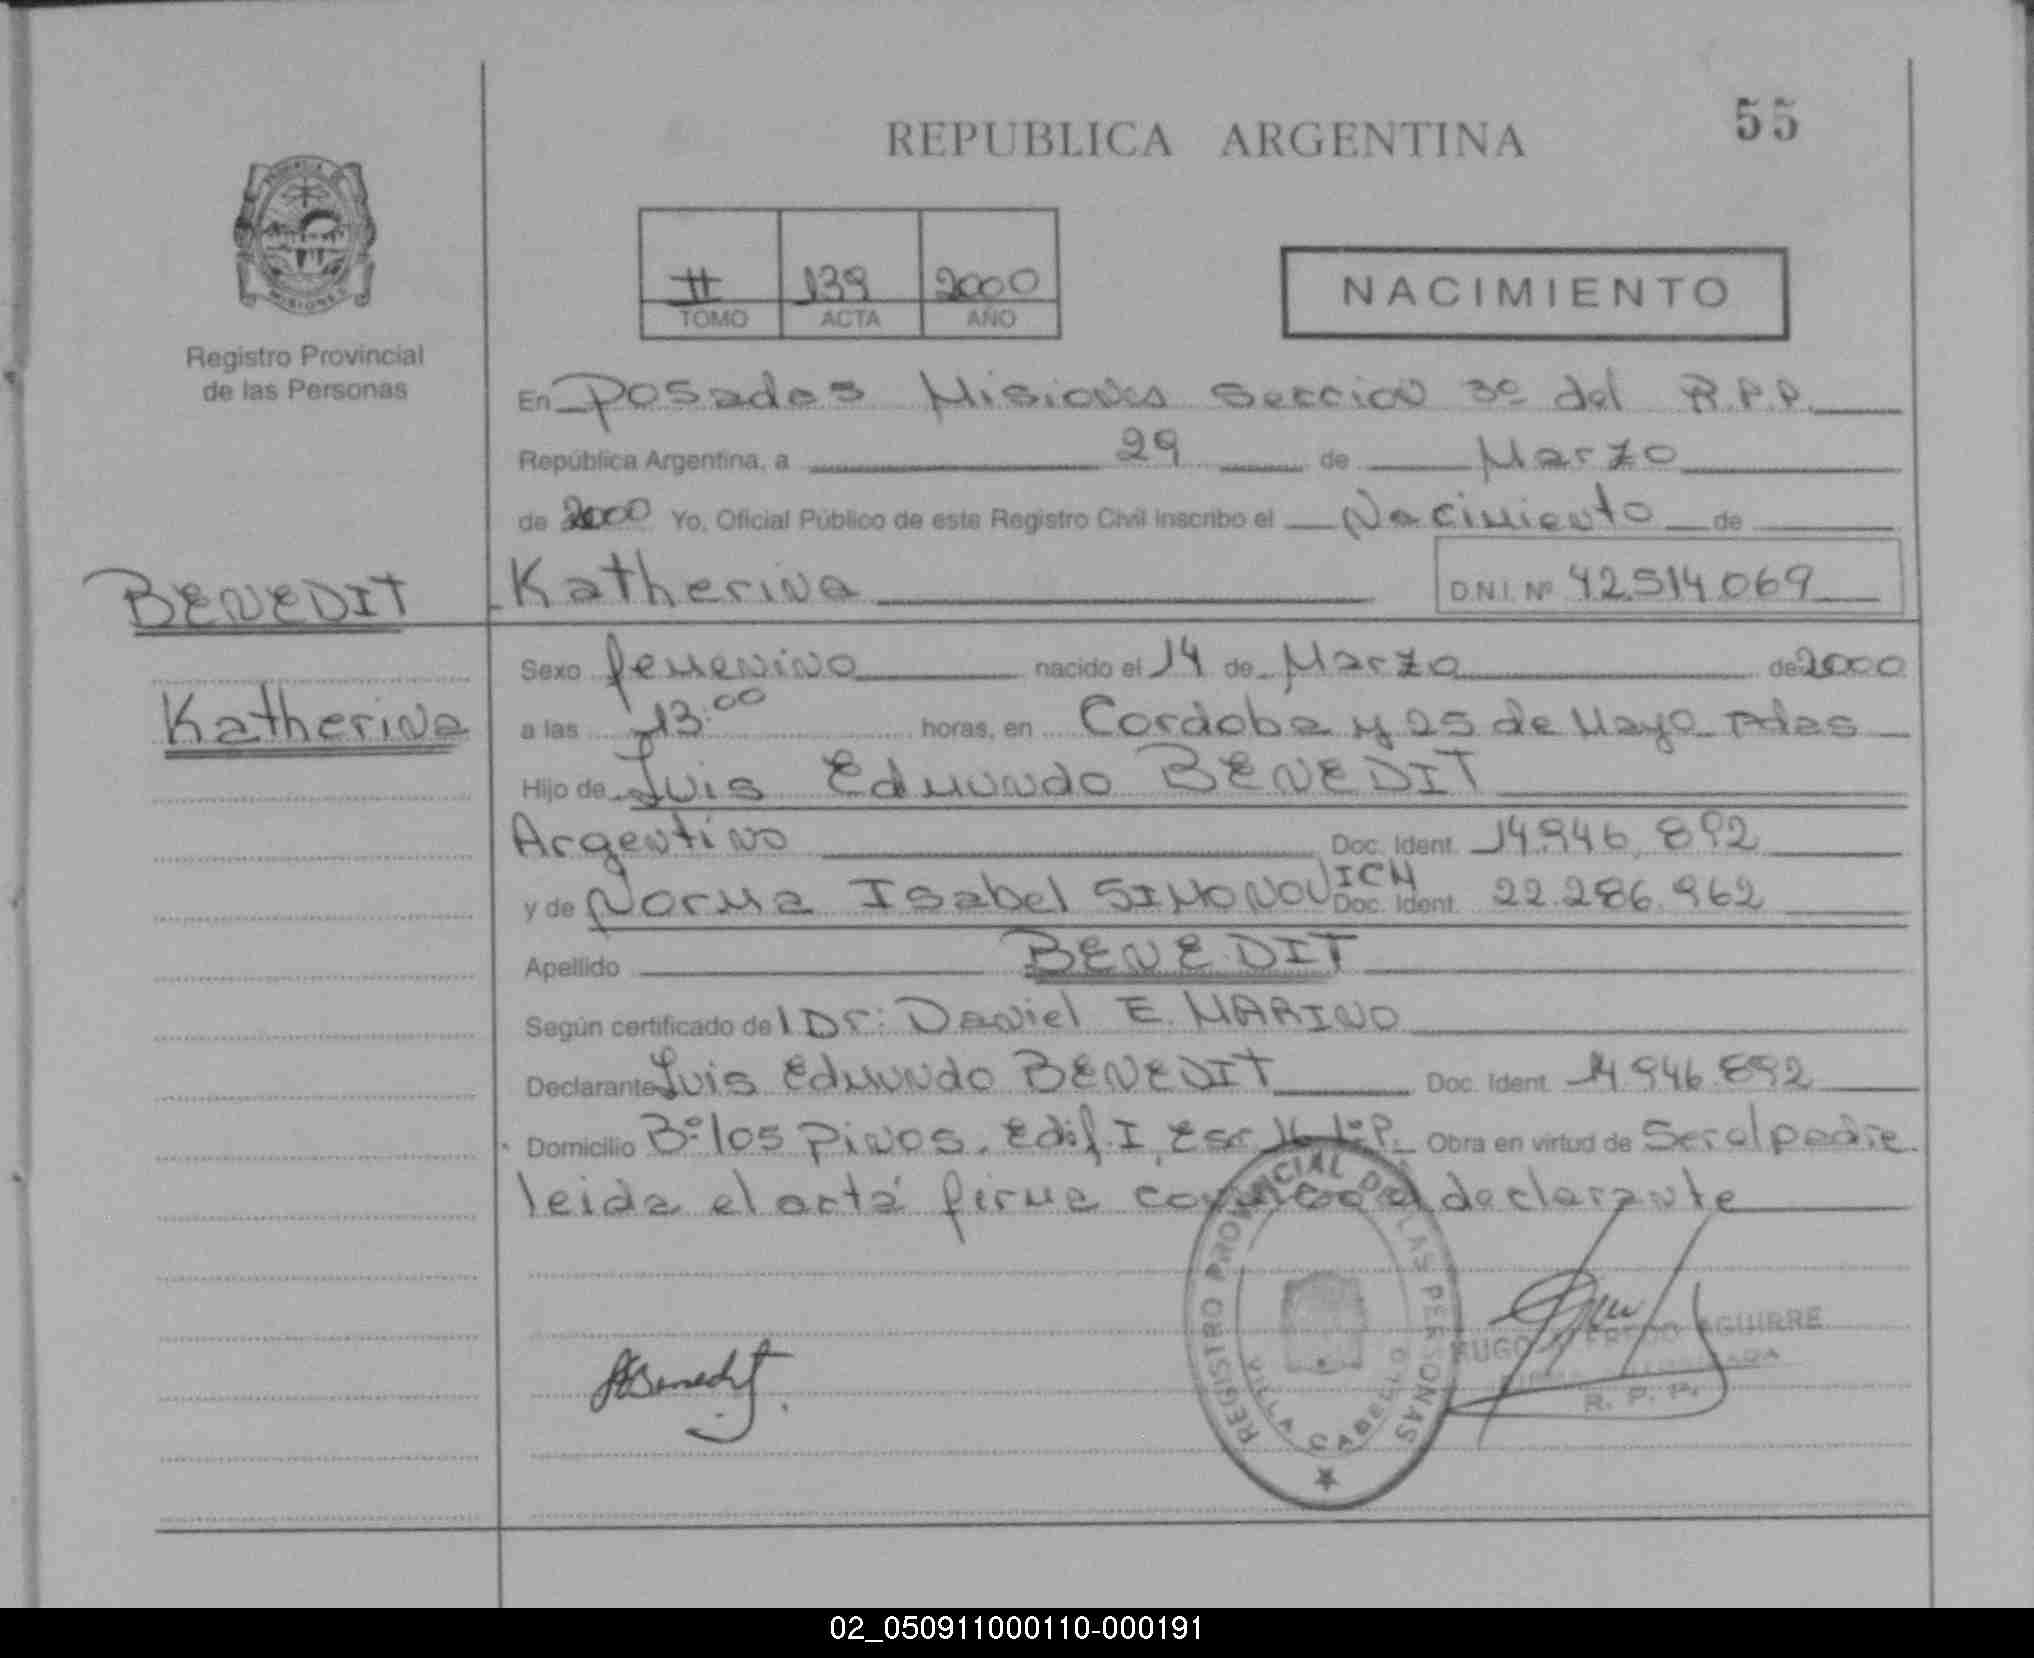 55
REPUBLICA ARGENTINA
PROVINCIA
MISIONES
Registro Provincial
de las Personas
II 139 2000
TOMO ACTA AÑO
NACIMIENTO
En Posadas Misiones Seccion 3º del R.P.P.
República Argentina, a 29 de Marzo
de 2000 Yo, Oficial Público de este Registro Civil inscribo el Nacimiento de
BENEDIT
Katherina
Katherina D.N.I. Nº 42.514.069
Sexo femenino nacido el 14 de Marzo de 2000
a las 13:00 horas, en Cordoba y 25 de Mayo Pdas
Hijo de Luis Edmundo BENEDIT
Argentino Doc. Ident. 14.946.892
y de Norma Isabel SIMONOVICH Doc. Ident. 22.286.962
Apellido BENEDIT
Según certificado del Dr: Daniel E. MARINO
Declarante Luis Edmundo BENEDIT Doc. Ident. 14.946.892
Domicilio Bº los Pinos. Edif. I, Esc. 1ºP. Obra en virtud de Ser el padre.
leida el acta firma conmigo el declarante
Benedit
REGISTRO PROVINCIAL DE LAS PERSONAS
VILLA CABELLO
HUGO ALFREDO AGUIRRE
R. P. P.
02_050911000110-000191